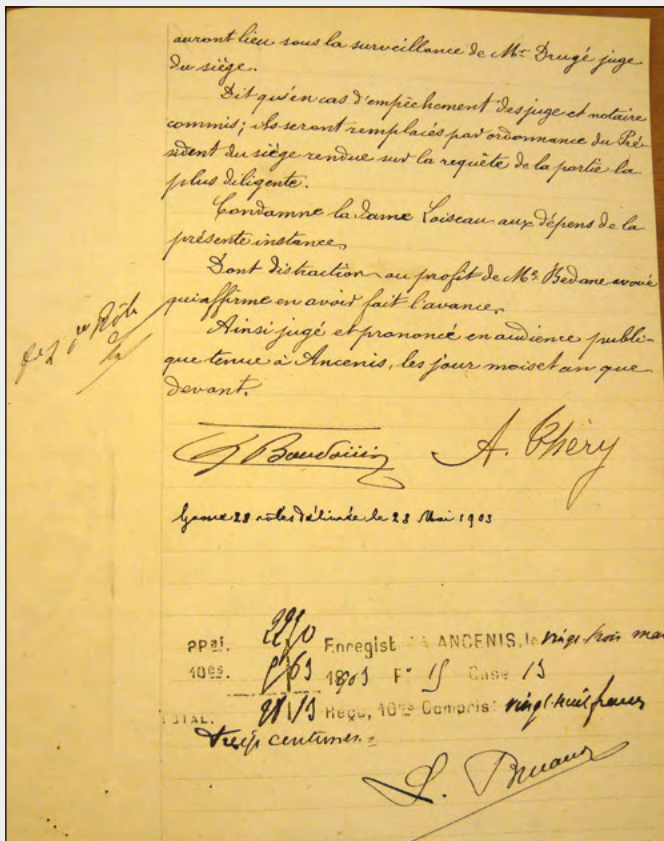 auront lieu sous la surveillance de Mr Drugé juge
du siège.
Dit qu'en cas d'empêchement des juge et notaire
commis; ils seront remplacés par ordonnance du Pré-
sident du siège rendue sur la requête de la partie la
plus diligente.
Condamne la dame Loiseau aux dépens de la
présente instance,
Dont distraction au profit de Me Bedane avoué
qui affirme en avoir fait l'avance,
Ainsi jugé et prononcé en audience publi-
que tenue à Ancenis, les jour mois et an que
devant.
Rôle
Baudouin A. Théry
28 rôles délivrée le 28 Mai 1903
PPal. 22 50 Enregist à ANCENIS, le vingt trois mai
10es. 5 63 1903 F° 15 Case 13
TOTAL. 28 13 Reçu, 10es Compris: vingt huit francs
treize centimes.